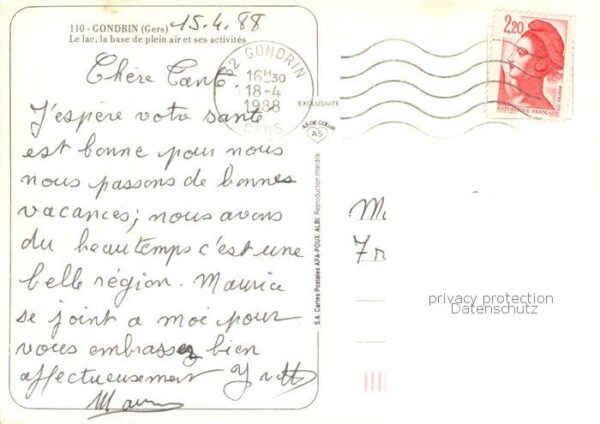 110 - GONDRIN (Gers)
Le lac, la base de plein air et ses activités
15.4.88
Chère Tant
J'espère votre santé
est bonne pour nous
nous passons de bonnes
vacances; nous avons
du beau temps c'est une
belle région. Maurice
se joint a moi pour
vous embrassez bien
affectueusement Yvette
32 GONDRIN
16H30
18-4
1988
GERS
EXCLUSIVITÉ
AS DE CŒUR
AS
S.A. Cartes Postales APA-POUX, ALBI. Reproduction Interdite
2,20
REPUBLIQUE FRANÇAISE
privacy protection
Datenschutz